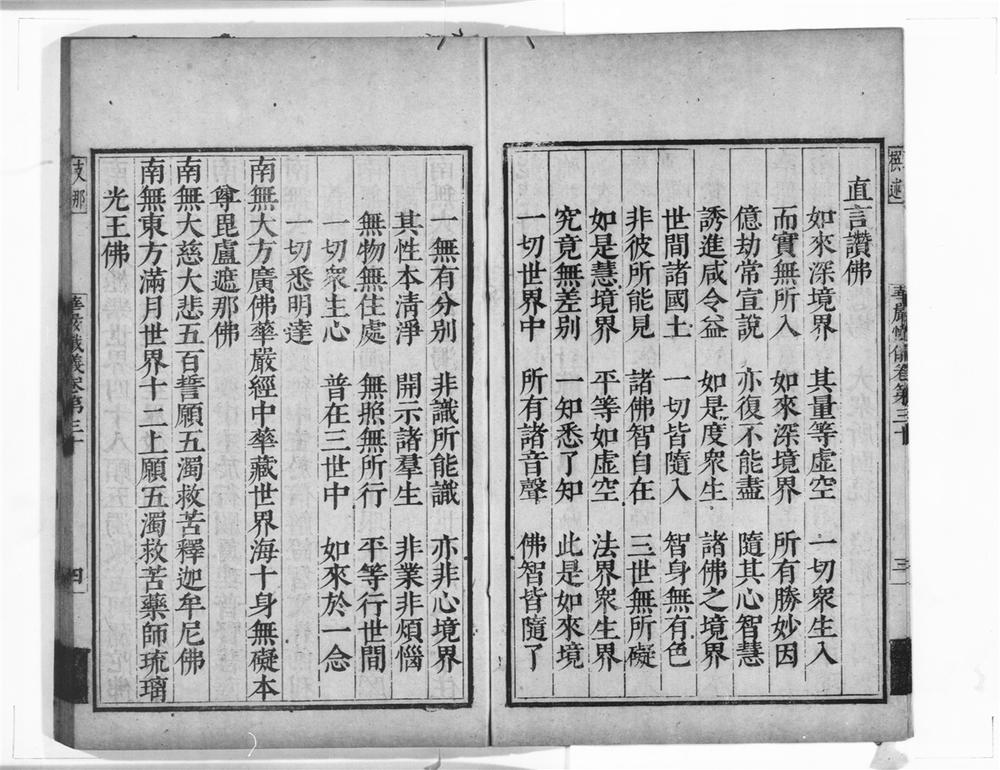 直言讚佛
如來深境界　其量等虛空　一切衆生入
而實無所入　如來深境界　所有勝妙因
億劫常宣說　亦復不能盡　隨其心智慧
誘進咸令益　如是度衆生　諸佛之境界
世間諸國土　一切皆隨入　智身無有色
非彼所能見　諸佛智自在　三世無所礙
如是慧境界　平等如虛空　法界衆生界
究竟無差別　一知悉了知　此是如來境
一切世界中　所有諸音聲　佛智皆隨了
華嚴懺儀卷第三十
三
一無有分別　非識所能識　亦非心境界
其性本淸淨　開示諸羣生　非業非煩惱
無物無住處　無照無所行　平等行世間
一切衆生心　普在三世中　如來於一念
一切悉明達
南無大方廣佛華嚴經中華藏世界海十身無礙本
尊毘盧遮那佛
南無大慈大悲五百誓願五濁救苦釋迦牟尼佛
南無東方滿月世界十二上願五濁救苦藥師琉璃
光王佛
支那
華嚴懺儀卷第三十
四